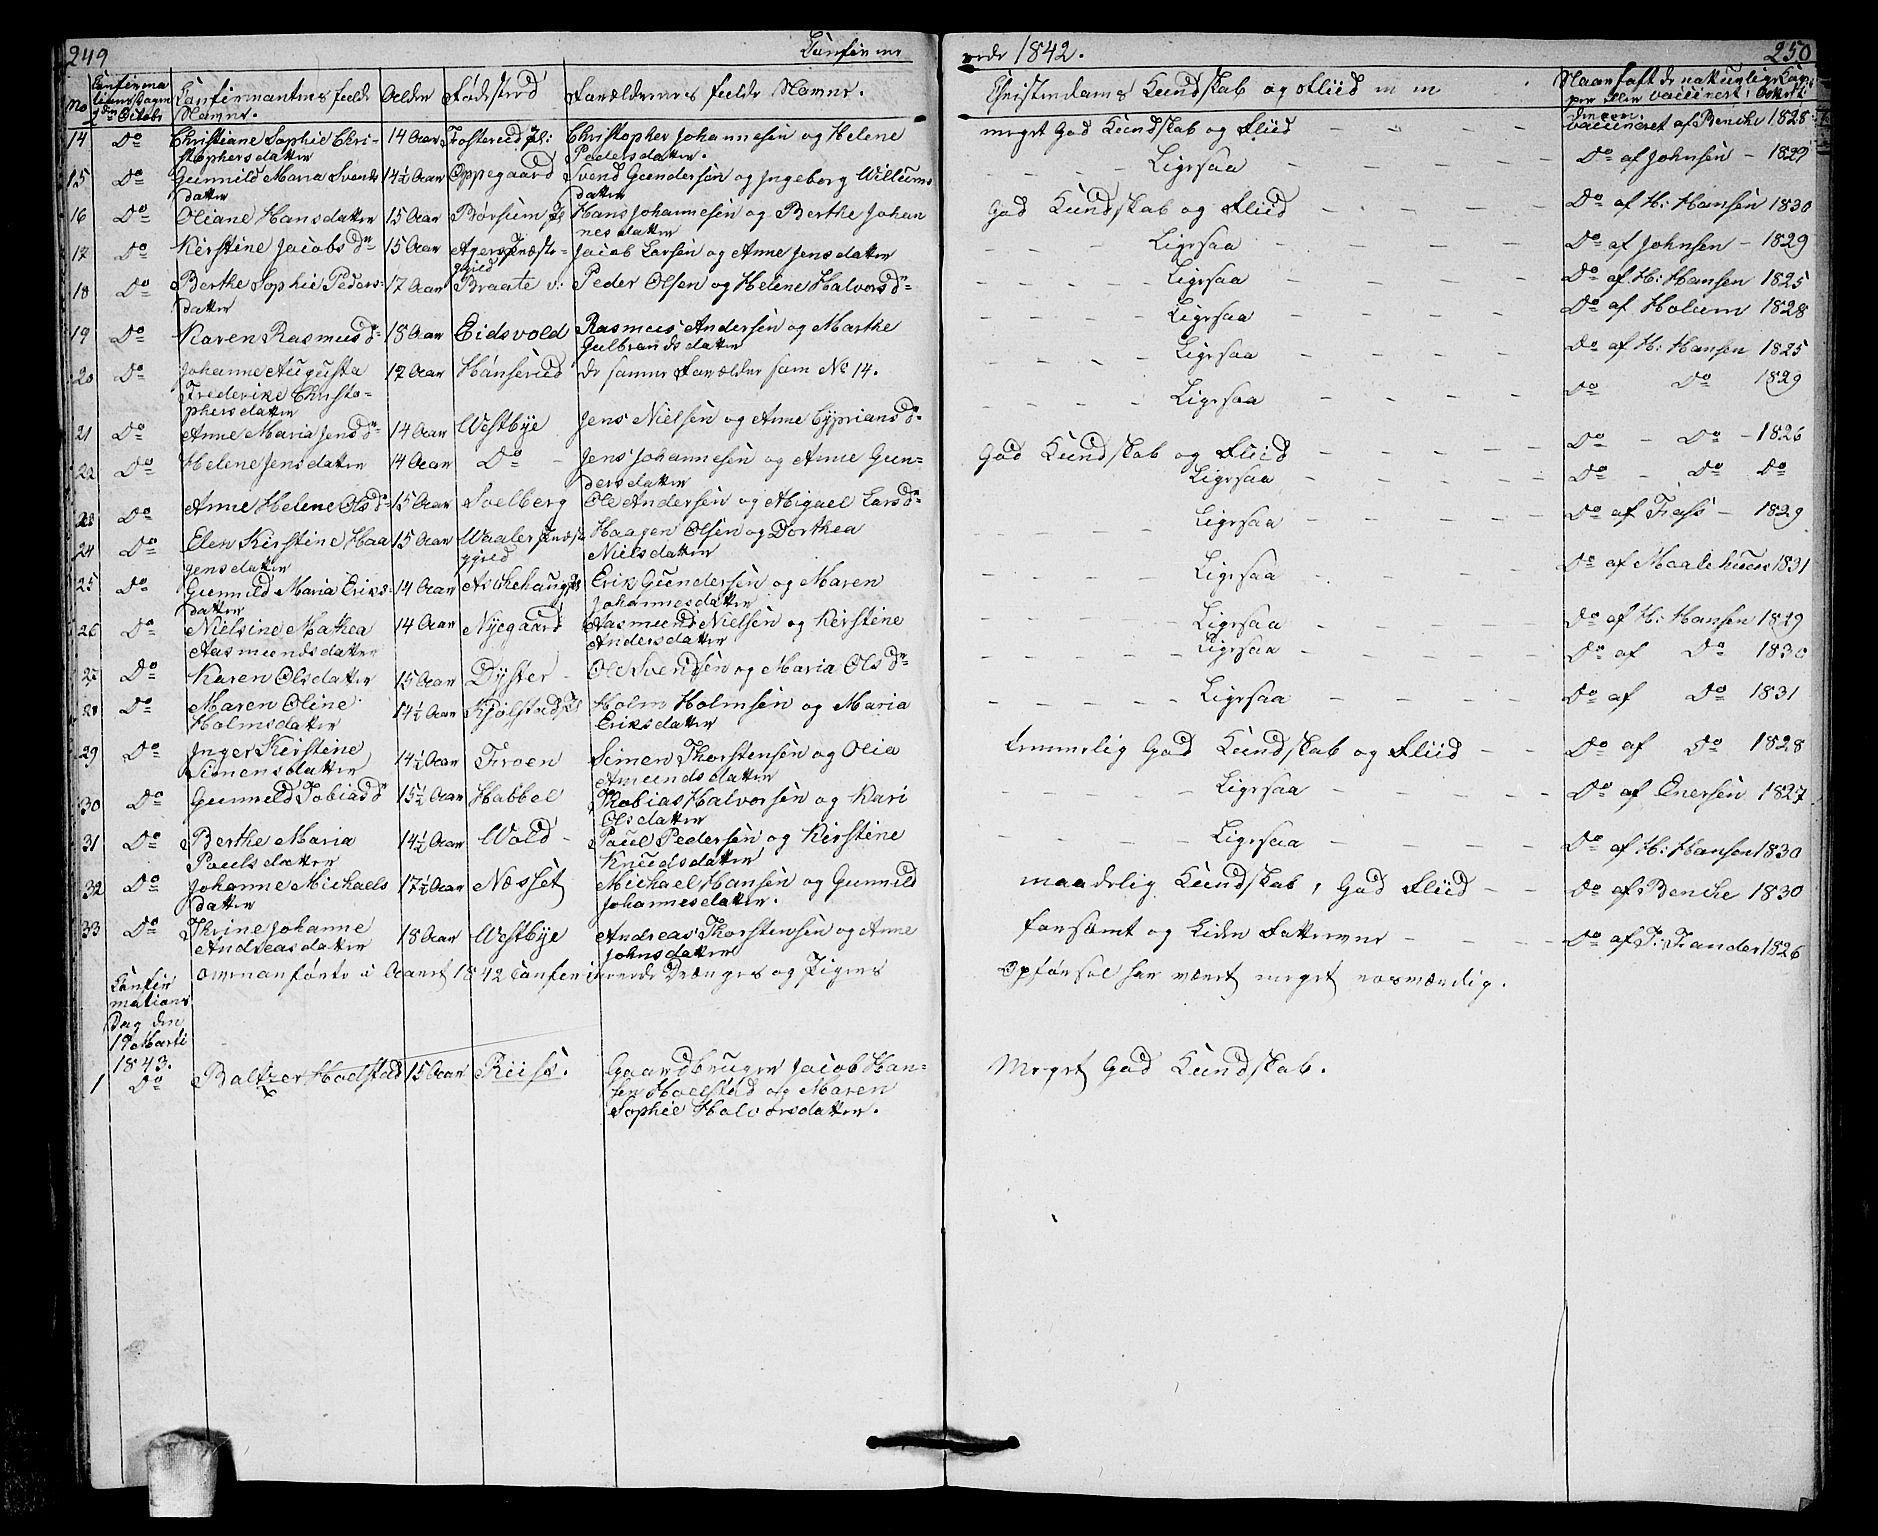 249 Confirme
rede 1842. 250
No Confirmationsdagen 2den Octobr Confirmantens fulde Navne. Alder Fødested Forældrenes fulde Navne. Christendoms Kundskab og Fliid m m Naar havt de naturlige Kopper eller vaccineret i Aaret
14 Do Christiane Sophie Chri- 14 Aar Fosterud Christopher Johannesen og Helene meget God Kundskab og Fliid vaccineret af Bencke 1828
stophersdatter Pedersdatter.
15 Do Gunnild Maria Svends 14½ Aar Oppegaard Svend Gundersen og Ingeborg Willums Ligesaa Do af Johnsen - 1829
datter datter
16 Do Oliane Hansdatter 15 Aar Børsum Hans Johannesen og Berthe Johan God Kundskab og Fliid Do af H: Hansen 1830
nesdatter
17 Do Kirstine Jacobsd 15 Aar Agers Præste- Jacob Larsen og Anne Jensdatter Ligesaa Do af Johnsen - 1829
gjeld
18 Do Berthe Sophie Peders- 17 Aar Braate v: Peder Olsen og Helene Halvorsd Ligesaa Do af H: Hansen 1825
datter
19 Do Karen Rasmusd 18 Aar Eidsvold Rasmus Andersen og Marthe Ligesaa Do af Holum 1828
Gulbrandsdatter
20 Do Johanne Augusta 17 Aar Hønserud de samme Forælder som No 14. Ligesaa Do af H: Hansen 1825
Frederike Christo-
phersdatter
21 Do Anne Maria Jensd 14 Aar Westbye Jens Nielsen og Anne Cypriansd Ligesaa Do Do 1829
22 Do Helene Jensdatter 14 Aar Do Jens Johannesen og Anne Gun- God Kundskab og Fliid Do - Do - 1826
dersdatter
23 Do Anne Helene Olsd 15 Aar Soelberg Ole Andersen og Abigael Larsd Ligesaa Do - Do Do
24 Do Elen Kirstine Haa 15 Aar Waaler Præste Haagen Olsen og Dorthea Ligesaa Do af - 1829
gensdatter gjeld Nielsdatter
25 Do Gunnild Maria Eriks- 14 Aar Askehaug Erik Gundersen og Maren Ligesaa Do af Maalehuus 1831
datter Johannesdatter
26 Do Nielsine Mathea 14 Aar Nyegaard Aasmund Nielsen og Kirstine Ligesaa Do af H: Hansen 1829
Aasmundsdatter Andersdatter
27 Do Karen Olsdatter 15 Aar Dyster - Ole Svendsen og Maria Olsd Ligesaa Do af Do 1830
28 Do Maren Oline 14½ Aar Kjølstad Holm Holmsen og Maria Ligesaa Do af Do 1831
Holmsdatter Eriksdatter
29 Do Inger Kirstine 14½ Aar Froen Simen Thorstensen og Olia temmelig God Kundskab og Fliid Do af Do 1828
Simensdatter Amundsdatter
30 Do Gunnild Tobiasd 15½ Aar Habbel Tobias Halvorsen og Kari Ligesaa Do af Enersen 1827
Olsdatter
31 Do Berthe Maria 14½ Aar Wold - Paul Pedersen og Kirstine Ligesaa Do af H: Hansen 1830
Paulsdatter Knudsdatter
32 Do Johanne Michaels 17½ Aar Næsset Michael Hansen og Gunnild maadelig Kundskab, God Fliid Do af Bencke 1830
datter Johannesdatter.
33 Do Thrine Johanne 18 Aar Westbye Andreas Thorstensen og Anne forsømt og Liden Fatteevne Do af 1826
Andreasdatter Johnsdatter
Ovenanførte i Aaret 1842 Confirmerede Drenges og Pigers Opførsel har været meget exosmærdig.
Confir
mations
Dag den
19 Marti
1843.
1 Do Baltzer Hoelstad 15 Aar Riise. Gaardbruger Jacob Han- Meget God Kundskab.
sen Hoelstad og Maren
Sophie Halvorsdatter.